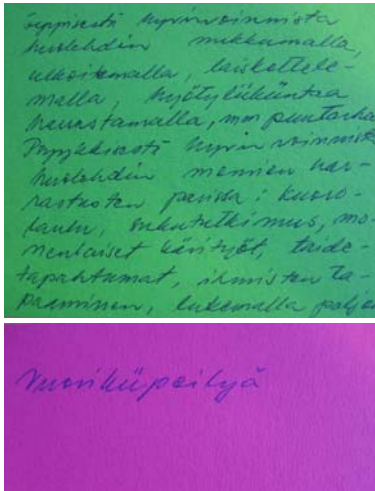 hyvinvoinnista
huolehdin nukkumalla,
ulkoilemalla, laiskottele-
malla, hyötyliikuntaa
harrastamalla, mm puutarha
Psyykkisestä hyvinvoinnista
huolehdin monien har-
rastusten parissa: kuoro-
laulu, sukututkimus, mo-
nenlaiset käsityöt, taide-
tapahtumat, ihmisten ta-
paaminen, lukemalla paljon
Vuorikiipeilyä